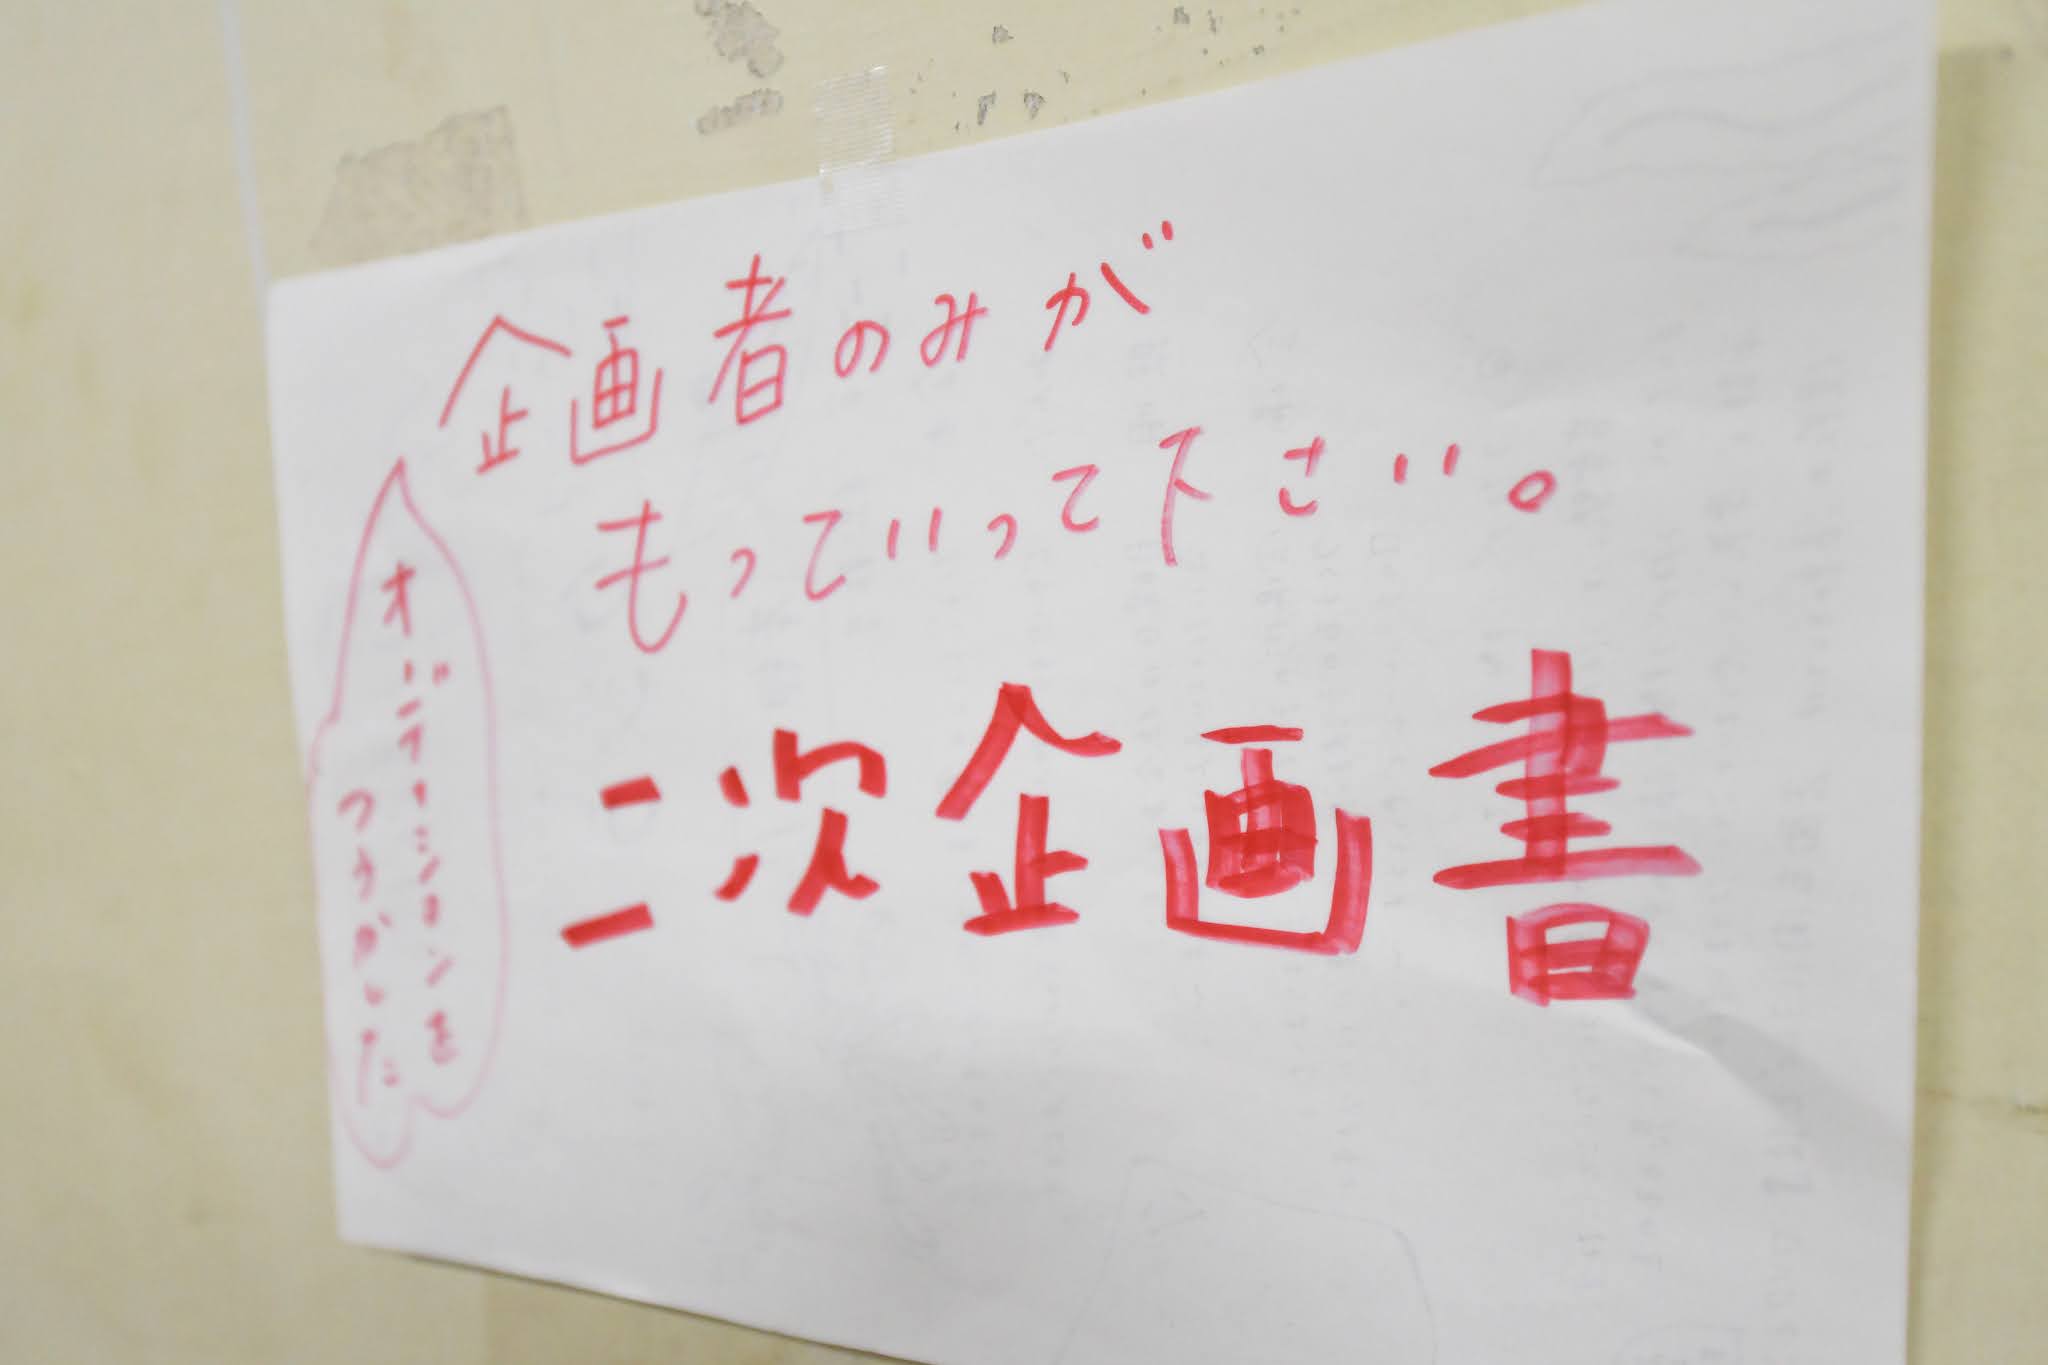 企画者のみが
もっていって下さい。
二次企画書
オーディションを
つうかした